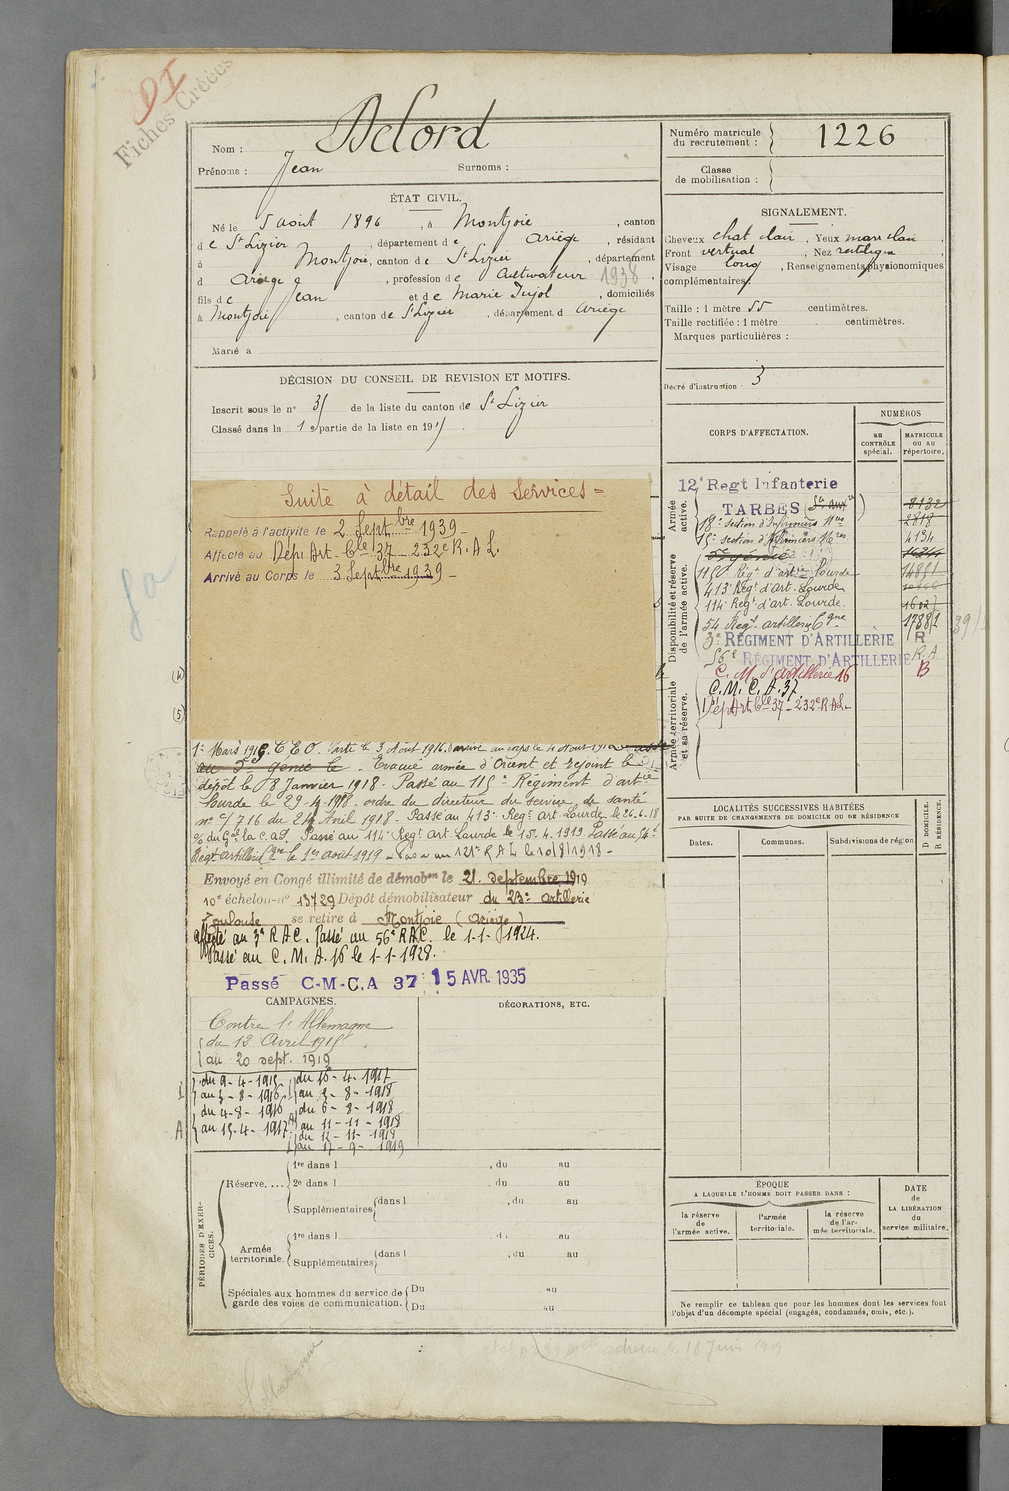 DI
Fiches Créées
Nom : Delord
Prénoms : Jean Surnoms :
Numéro matricule du recrutement : 1226
Classe de mobilisation :
ÉTAT CIVIL.
Né le 5 aout 1896, à Montjoie, canton
de St Lizier, département de Ariège, résidant
à Montjoie, canton de St Lizier, département
d Ariège, profession de Cultivateur 1938
fils de Jean et de Marie Pujol, domiciliés
à Montjoie, canton de St Lizier, département d Ariège
Marié à
SIGNALEMENT.
Cheveux chat clair, Yeux marr clair,
Front vertical, Nez rectiligne,
Visage long, Renseignements physionomiques
complémentaires:
Taille : 1 mètre 55 centimètres.
Taille rectifiée : 1 mètre centimètres.
Marques particulières :
Degré d'instruction 3
DÉCISION DU CONSEIL DE REVISION ET MOTIFS.
Inscrit sous le n° de la liste du canton de St Lizier
Classé dans la 1e partie de la liste en 191
Suite à détail des Services =
Rappelé à l'activité le 2 Septbre 1939
Affecté au Dépt Art. Cle 37 - 232e R.A.L.
Arrivé au Corps le 3 Septbre 1939
1er Mars 1916. C E O. Parti le 3 Aout 1916. Arrivé au corps le 4 Aout 1916
au génie le Evacué armée d'Orient et rejoint le
dépôt le 8 Janvier 1918. Passé au 115e Régiment d'artie
lourde le 29-4-1918. ordre du directeur du service de santé
n° c/716 du 24 Avril 1918. Passé au 413e Regt art Lourde le 26.6.18
Passé au 114e Regt Art. Lourde le 15.4.1919. Passé au 54e
Regt artillerie Cgne le 1er aout 1919 - Passé au 121e R A L le 10/8/1918 -
Envoyé en Congé illimité de démobon le 21 septembre 1919
10e échelon n° 13729 Dépôt démobilisateur du 23e artillerie
Toulouse se retire à Montjoie (Ariège)
Affecté au 3e R A C. Passé au 56e R A C. le 1-1-1924.
Passé au C. M. A. 16 le 1-1-1928.
Passé C-M-C.A 37 15 AVR. 1935
CORPS D'AFFECTATION.
NUMÉROS
au CONTRÔLE spécial.
MATRICULE ou au répertoire.
Armée active.
Disponibilité et réserve de l'armée active.
Armée territoriale et sa réserve.
12e Regt Infanterie
TARBES
8132
18e section d'Infirmiers Mres 2818
15e section d'Infirmiers Mres 4194
génie
115e Régt d'artie Lourde
413e Regt d'art. Lourde
114e Regt d'art. Lourde.
54 Regt artillerie Cgne
3e RÉGIMENT D'ARTILLERIE R
56e RÉGIMENT D'ARTILLERIE R.A
C. M. d'artillerie 16 B
C. M. C. A. 37
Dépt Art. Cle 37 - 232e R.A.L -
LOCALITÉS SUCCESSIVES HABITÉES
PAR SUITE DE CHANGEMENTS DE DOMICILE OU DE RÉSIDENCE
D DOMICILE.
R RÉSIDENCE.
Dates. Communes. Subdivisions de région
CAMPAGNES.
DÉCORATIONS, ETC.
Contre l'Allemagne
du 13 Avril 1915
au 20 sept. 1919
du 9-4-1915
au 3-8-1916
du 4-8-1916
au 15-4-1917
du 16-4-1917
au 5-8-1918
du 6-8-1918
au 11-11-1918
du 12-11-1918
au 17-9-1919
PÉRIODES D'EXERCICES.
Réserve....
1re dans l , du au
2e dans l , du au
Supplémentaires dans l , du au
Armée territoriale.
1re dans l , du au
Supplémentaires dans l , du au
Spéciales aux hommes du service de garde des voies de communication.
Du au
Du au
ÉPOQUE
A LAQUELLE L'HOMME DOIT PASSER DANS :
la réserve de l'armée active.
l'armée territoriale.
la réserve de l'armée territoriale.
DATE de LA LIBÉRATION du service militaire.
Ne remplir ce tableau que pour les hommes dont les services font
l'objet d'un décompte spécial (engagés, condamnés, omis, etc.).